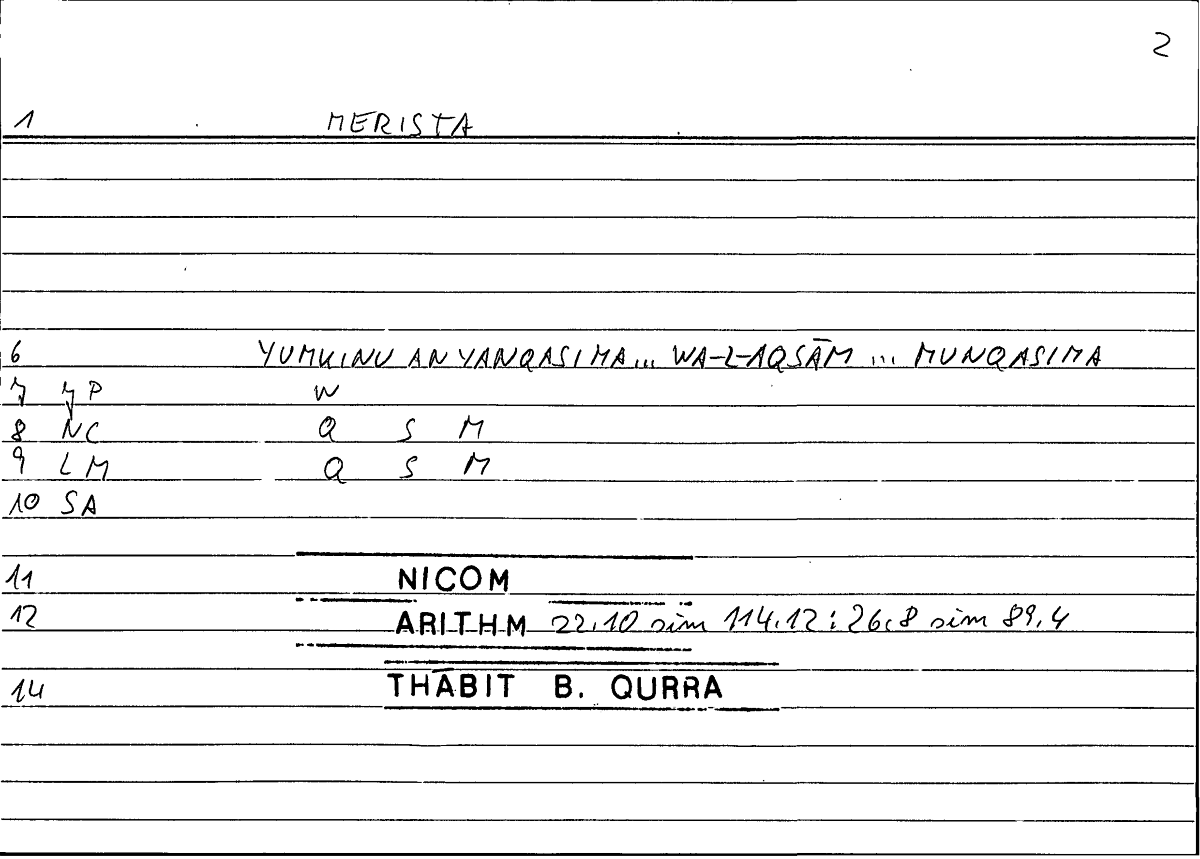 2
1 MERISTA
6 YUMKINU AN YANQASIMA... WA-L-AQSĀM ... MUNQASIMA
7 W
8 NC Q S M
9 LM Q S M
10 SA
11 NICOM
12 ARITHM 22.10 sim 114.12 : 26.8 sim 89.4
14 THĀBIT B. QURRA